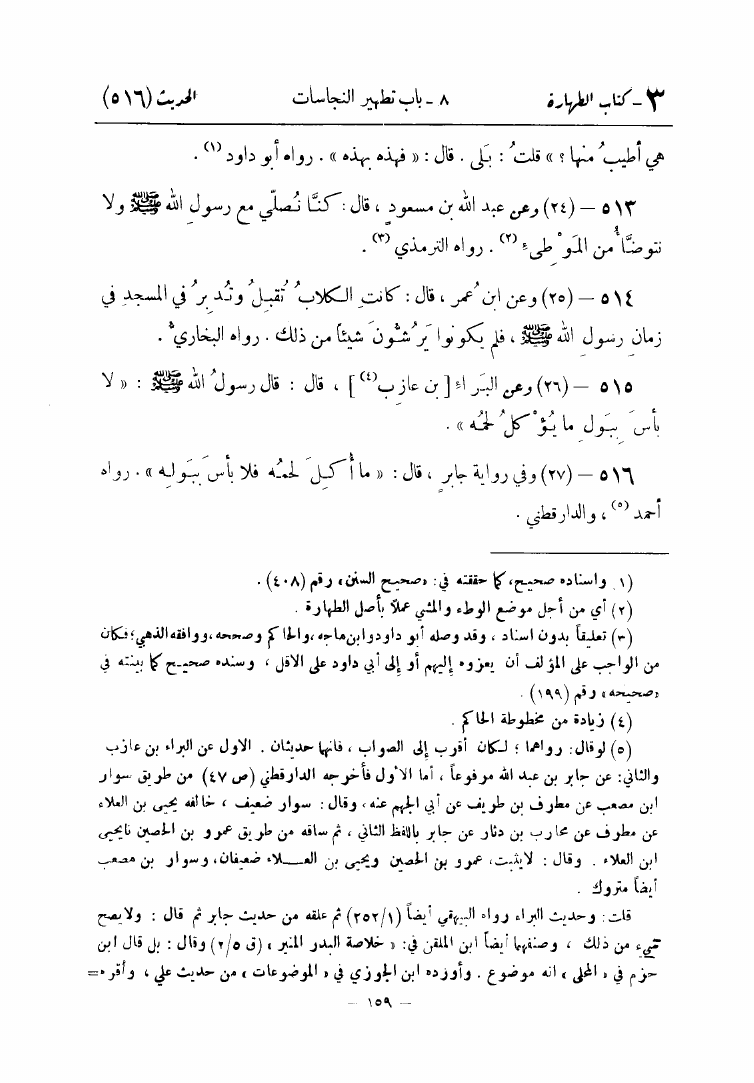 ٣ - كتاب الطهارة ٨ - باب تطهير النجاسات الحديث (٥١٦)
هي أطيبُ منها؟» قلتُ: بَلى. قال: «فهذه بهذه». رواه أبو داود (١).
٥١٣ – (٢٤) وعن عبد الله بن مسعودٍ، قال: كنَّا نُصلّي مع رسولِ الله ﷺ ولا
نتوضَّأُ من المَوْطىءِ (٢). رواه الترمذي (٣).
٥١٤ – (٢٥) وعن ابن عُمر، قال: كانتِ الكلابُ تُقبلُ وتُدبرُ في المسجدِ في
زمانِ رسولِ الله ﷺ، فلم يكونوا يَرُشُّونَ شيئاً من ذلك. رواه البخاريُّ.
٥١٥ – (٢٦) وعن البَراءِ [بن عازبٍ (٤)]، قال: قال رسولُ الله ﷺ: «لا
بأسَ ببَولِ ما يُؤْكلُ لحمُه».
٥١٦ – (٢٧) وفي رواية جابرٍ، قال: «ما أُكِلَ لحمُه فلا بأسَ ببَولِه». رواه
أحمد (٥)، والدارقطني.
(١) واسناده صحيح، كما حققته في: «صحيح السنن» رقم (٤٠٨).
(٢) أي من أجل موضع الوطء والمشي عملاً بأصل الطهارة.
(٣) تعليقاً بدون اسناد، وقد وصله أبو داود وابن ماجه، والحاكم وصححه، ووافقه الذهبي؛ فكان
من الواجب على المؤلف أن يعزوه إليهم أو إلى أبي داود على الاقل، وسنده صحيح كما بينته في
«صحيحه» رقم (١٩٩).
(٤) زيادة من مخطوطة الحاكم.
(٥) لو قال: رواهما؛ لكان أقرب إلى الصواب، فانها حديثان. الاول عن البراء بن عازب
والثاني: عن جابر بن عبد الله مرفوعاً، أما الأول فأخرجه الدارقطني (ص ٤٧) من طريق سوار
ابن مصعب عن مطرف بن طريف عن أبي الجهم عنه، وقال: سوار ضعيف، خالفه يحيى بن العلاء
عن مطرف عن محارب بن دثار عن جابر باللفظ الثاني، ثم ساقه من طريق عمرو بن الحصين نا يحيى
ابن العلاء. وقال: لا يثبت، عمرو بن الحصين ويحيى بن العلاء ضعيفان، وسوار بن مصعب
أيضاً متروك.
قلت: وحديث البراء رواه البيهقي أيضاً (٢٥٢/١) ثم علقه من حديث جابر ثم قال: ولا يصح
شيء من ذلك، وضعفها أيضاً ابن الملقن في: «خلاصة البدر المنير» (ق ٢/٥) وقال: بل قال ابن
حزم في «المحلى» انه موضوع. وأورده ابن الجوزي في «الموضوعات» من حديث علي، وأقره =
– ١٥٩ –